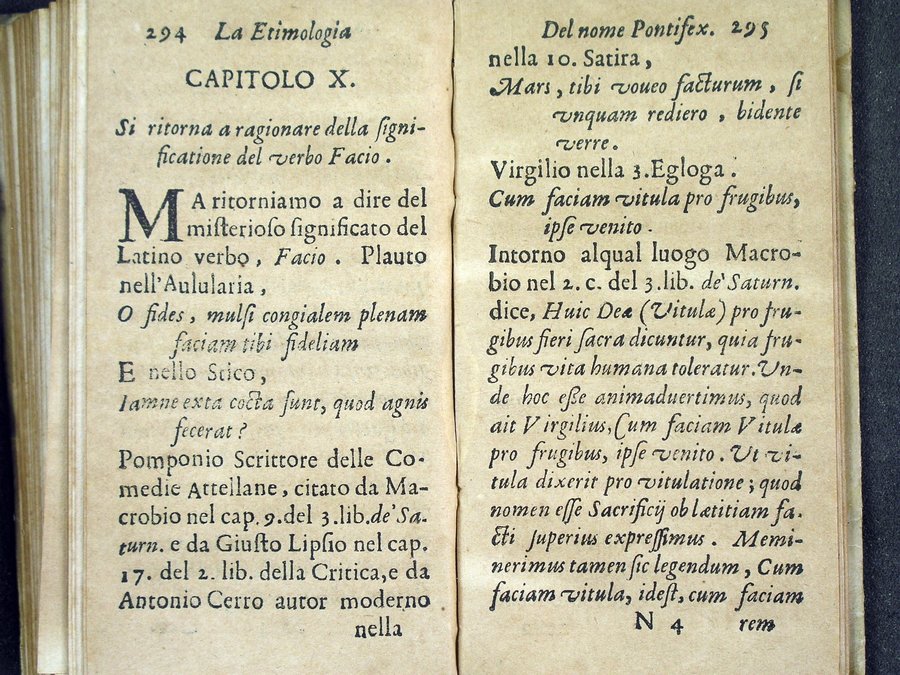 294 La Etimologia
CAPITOLO X.
Si ritorna a ragionare della ſigni-
ficatione del verbo Facio.
MA ritorniamo a dire del
miſterioſo ſignificato del
Latino verbo, Facio. Plauto
nell'Aulularia,
O fides, mulſi congialem plenam
faciam tibi fideliam
E nello Stico,
Iamne exta cocta ſunt, quod agnis
fecerat?
Pomponio Scrittore delle Co-
medie Attellane, citato da Ma-
crobio nel cap. 9. del 3. lib. de' Sa-
turn. e da Giuſto Lipſio nel cap.
17. del 2. lib. della Critica, e da
Antonio Cerro autor moderno
nella
Del nome Pontifex. 295
nella 10. Satira,
Mars, tibi voueo facturum, ſi
vnquam rediero, bidente
verre.
Virgilio nella 3. Egloga.
Cum faciam vitula pro frugibus,
ipſe venito.
Intorno alqual luogo Macro-
bio nel 2. c. del 3. lib. de' Saturn.
dice, Huic Deæ (Vitulæ) pro fru-
gibus fieri ſacra dicuntur, quia fru-
gibus vita humana toleratur. Un-
de hoc eſſe animaduertimus, quod
ait Virgilius, Cum faciam Vitulæ
pro frugibus, ipſe venito. Ut vi-
tula dixerit pro vitulatione; quod
nomen eſſe Sacrificij ob lætitiam fa-
cti ſuperius expreſſimus. Memi-
nerimus tamen ſic legendum, Cum
faciam vitula, ideſt, cum faciam
N 4 rem